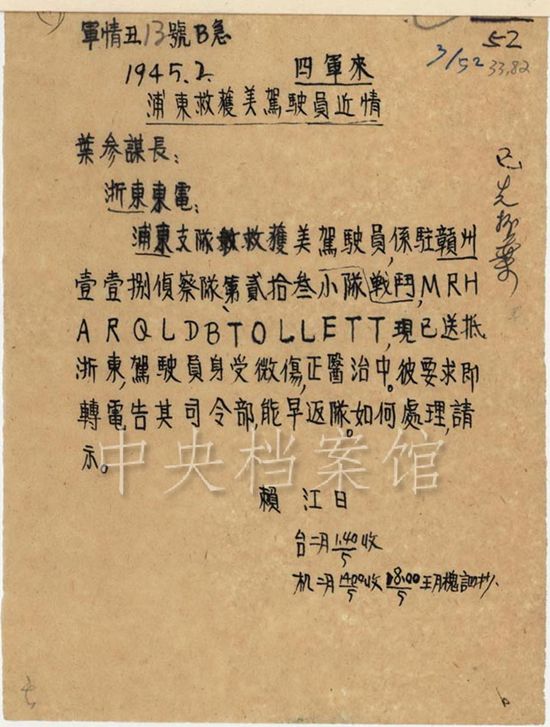 軍情丑13號B急
52
3/52 33,82
1945.2. 四軍來
浦東救獲美駕駛員近情
葉參謀長:
浙東東電:
浦東支隊救獲美駕駛員,係駐贛州
壹壹捌偵察隊、第貳拾叁小隊戰鬥,MRH
ARQLDBTOLLETT,現已送抵
浙東,駕駛員身受微傷,正醫治中。彼要求即
轉電告其司令部,能早返隊。如何處理,請
示。
賴 江日
台二月1.40/5收
机二月1400/5收18.00/5
中央档案馆